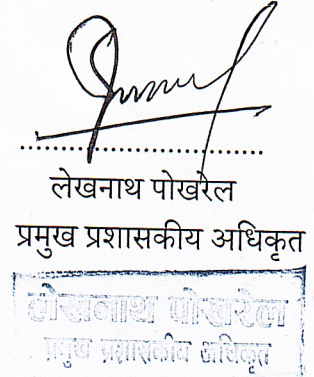 लेखनाथ पोखरेल
प्रमुख प्रशासकीय अधिकृत
लेखनाथ पोखरेल
प्रमुख प्रशासकीय अधिकृत